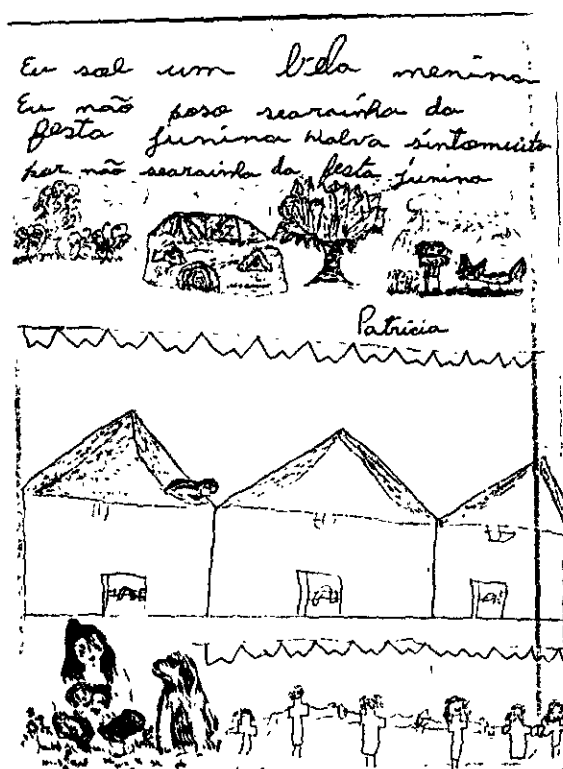 Eu sol um bela menina
Eu não poso searainha da
festa junina Malva sintomuito
por não searainha da festa junina
Patricia